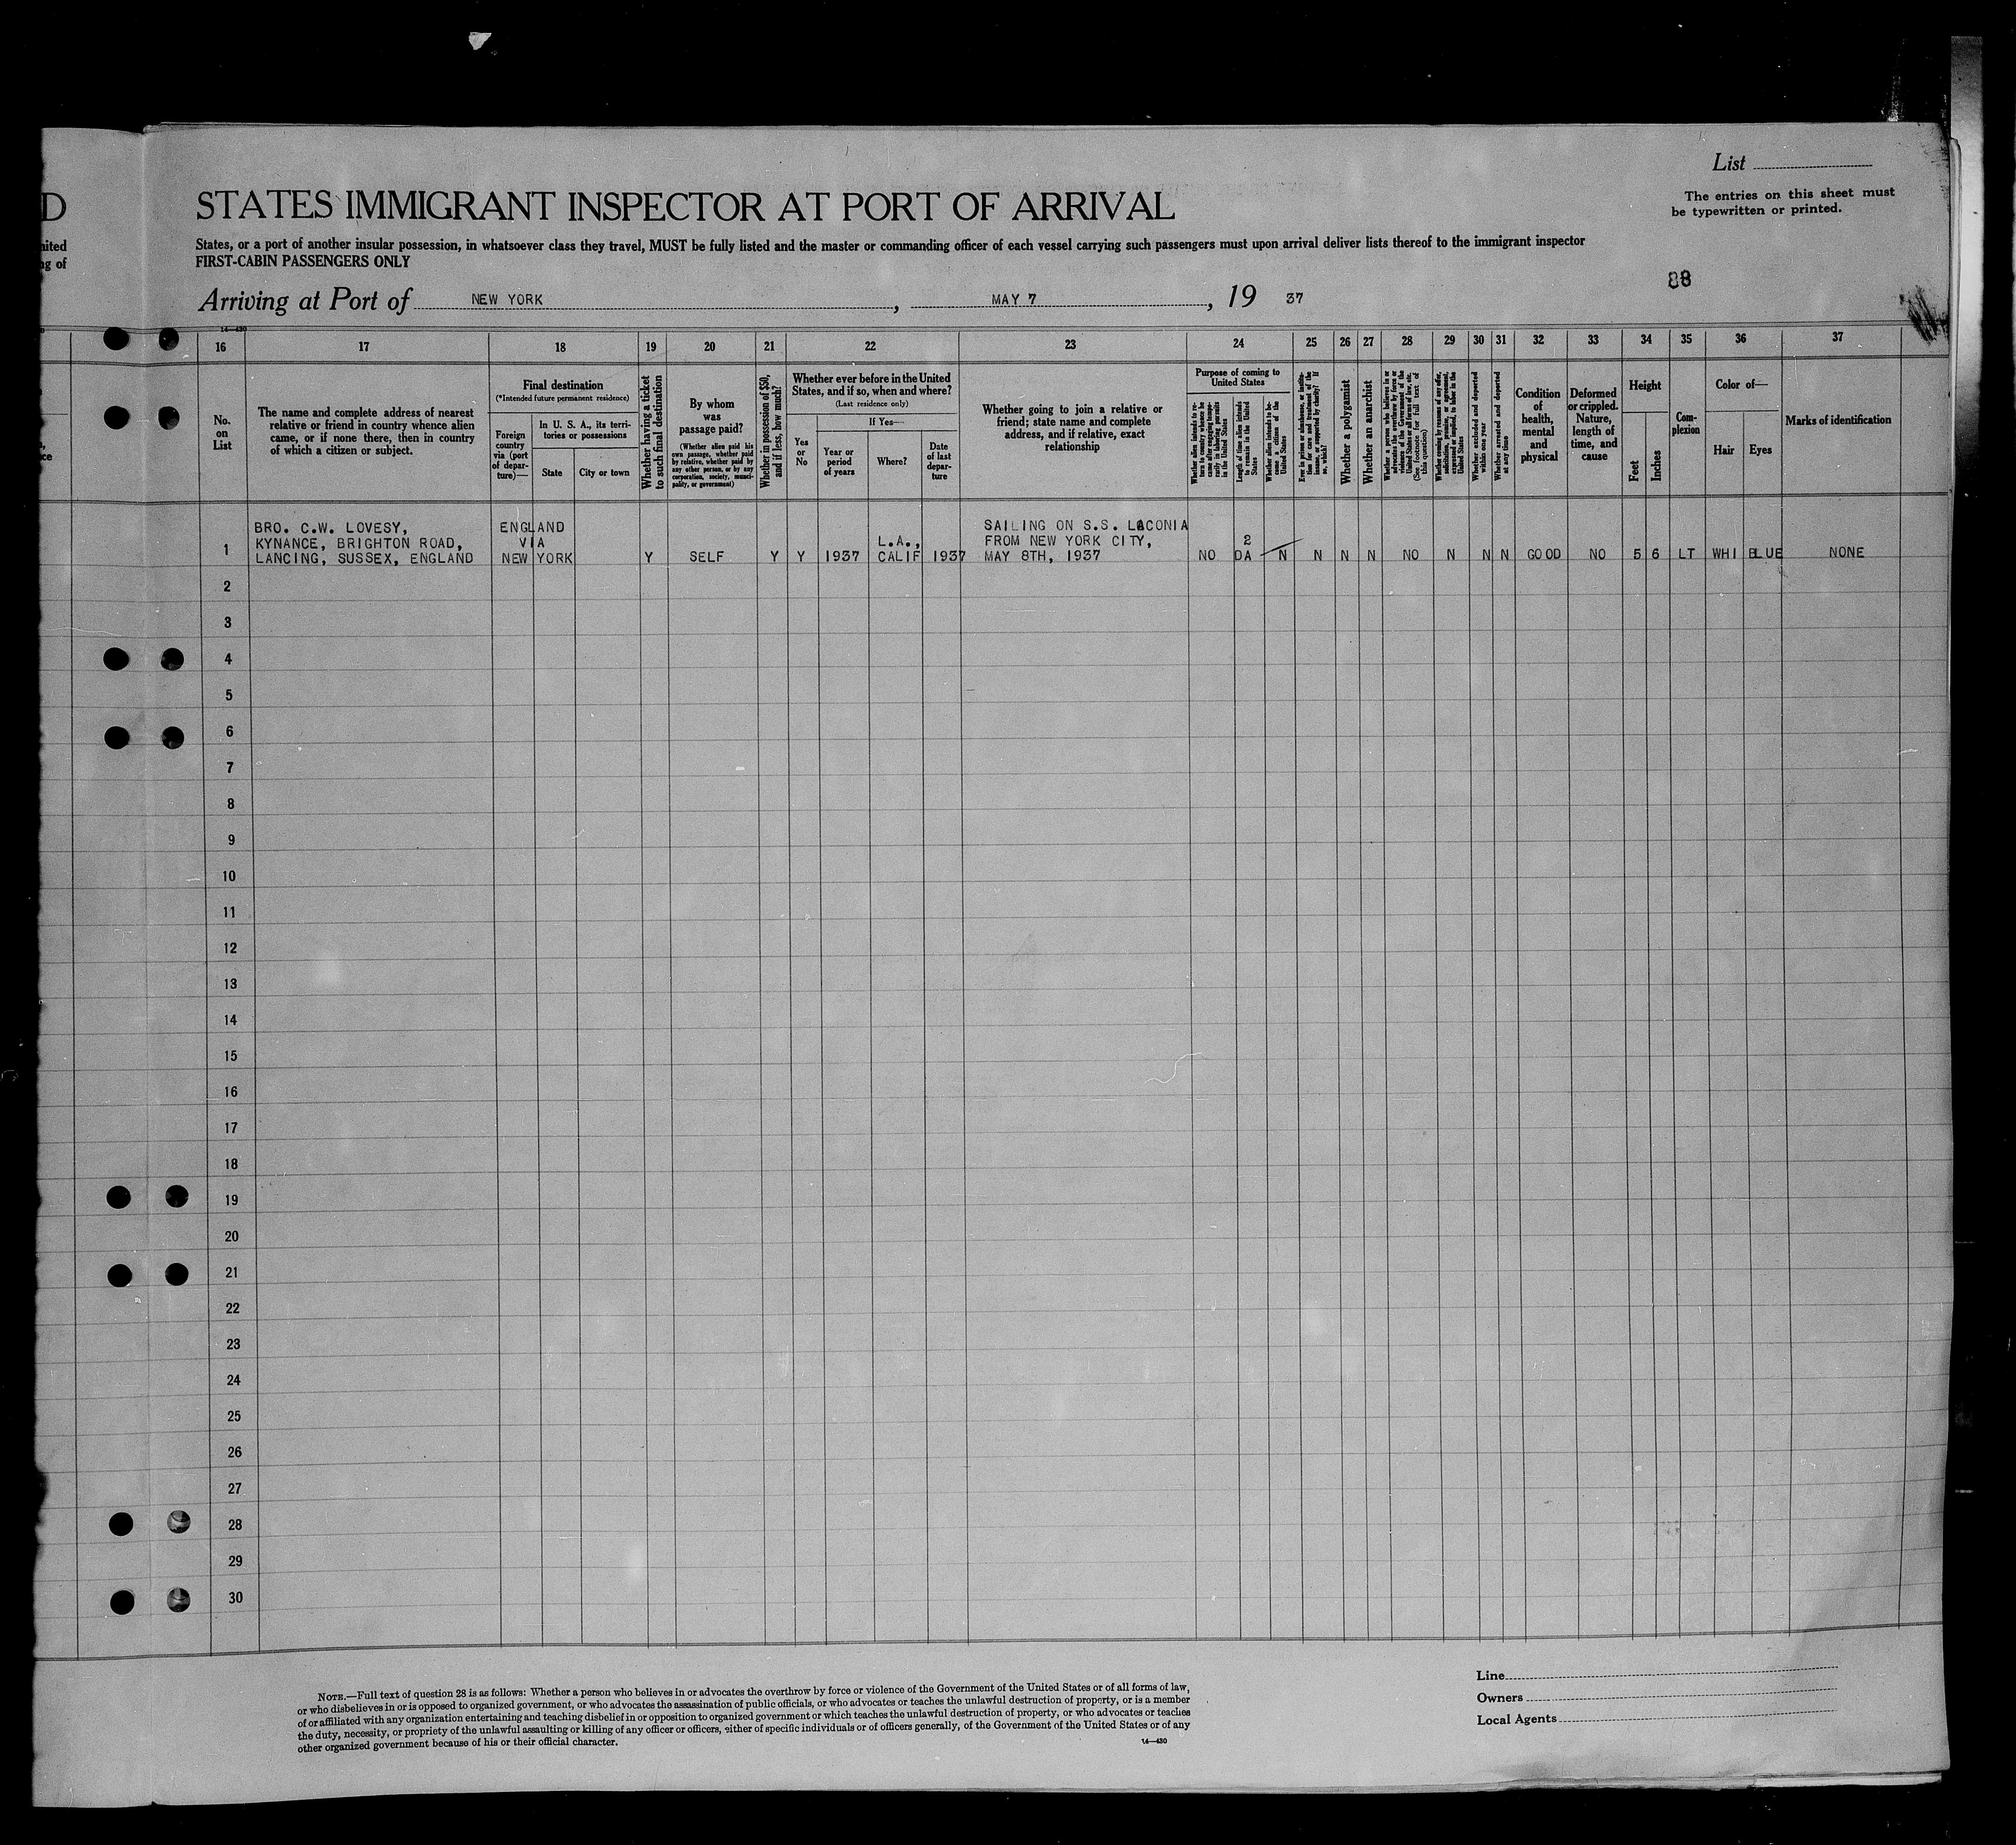 D
nited
ng of
List
The entries on this sheet must
be typewritten or printed.
STATES IMMIGRANT INSPECTOR AT PORT OF ARRIVAL
States, or a port of another insular possession, in whatsoever class they travel, MUST be fully listed and the master or commanding officer of each vessel carrying such passengers must upon arrival deliver lists thereof to the immigrant inspector
FIRST-CABIN PASSENGERS ONLY
88
Arriving at Port of NEW YORK, MAY 7, 19 37
14—430
16 17 18 19 20 21 22 23 24 25 26 27 28 29 30 31 32 33 34 35 36 37
No.
on
List
The name and complete address of nearest
relative or friend in country whence alien
came, or if none there, then in country
of which a citizen or subject.
Final destination
(*Intended future permanent residence)
Foreign
country
via (port
of depar-
ture)—
In U. S. A., its terri-
tories or possessions
State
City or town
Whether having a ticket
to such final destination
By whom
was
passage paid?
(Whether alien paid his
own passage, whether paid
by relative, whether paid by
any other person, or by any
corporation, society, munici-
pality, or government)
Whether in possession of $50,
and if less, how much?
Whether ever before in the United
States, and if so, when and where?
(Last residence only)
Yes
or
No
If Yes—
Year or
period
of years
Where?
Date
of last
depar-
ture
Whether going to join a relative or
friend; state name and complete
address, and if relative, exact
relationship
Purpose of coming to
United States
Whether alien intends to re-
turn to country whence he
came after engaging tempo-
rarily in laboring pursuits
in the United States
Length of time alien intends
to remain in the United
States
Whether alien intends to be-
come a citizen of the
United States
Ever in prison or almshouse, or institu-
tion for care and treatment of the
insane, or supported by charity? If
so, which?
Whether a polygamist
Whether an anarchist
Whether a person who believes in or
advocates the overthrow by force or
violence of the Government of the
United States or all forms of law, etc.
(See footnote for full text of
this question)
Whether coming by reason of any offer,
solicitation, promise, or agreement,
expressed or implied, to labor in the
United States
Whether excluded and deported
within one year
Whether arrested and deported
at any time
Condition
of
health,
mental
and
physical
Deformed
or crippled.
Nature,
length of
time, and
cause
Height
Feet
Inches
Com-
plexion
Color of—
Hair
Eyes
Marks of identification
BRO. C.W. LOVESY,
KYNANCE, BRIGHTON ROAD,
LANCING, SUSSEX, ENGLAND
ENGLAND
VIA
NEW YORK
L.A.,
SAILING ON S.S. LACONIA
FROM NEW YORK CITY,
MAY 8TH, 1937
2
1 Y SELF Y Y 1937 CALIF 1937 NO DA N N N N NO N N N GOOD NO 5 6 LT WHI BLUE NONE
2
3
4
5
6
7
8
9
10
11
12
13
14
15
16
17
18
19
20
21
22
23
24
25
26
27
28
29
30
NOTE.—Full text of question 28 is as follows: Whether a person who believes in or advocates the overthrow by force or violence of the Government of the United States or of all forms of law,
or who disbelieves in or is opposed to organized government, or who advocates the assassination of public officials, or who advocates or teaches the unlawful destruction of property, or is a member
of or affiliated with any organization entertaining and teaching disbelief in or opposition to organized government or which teaches the unlawful destruction of property, or who advocates or teaches
the duty, necessity, or propriety of the unlawful assaulting or killing of any officer or officers, either of specific individuals or of officers generally, of the Government of the United States or of any
other organized government because of his or their official character.
14—430
Line
Owners
Local Agents